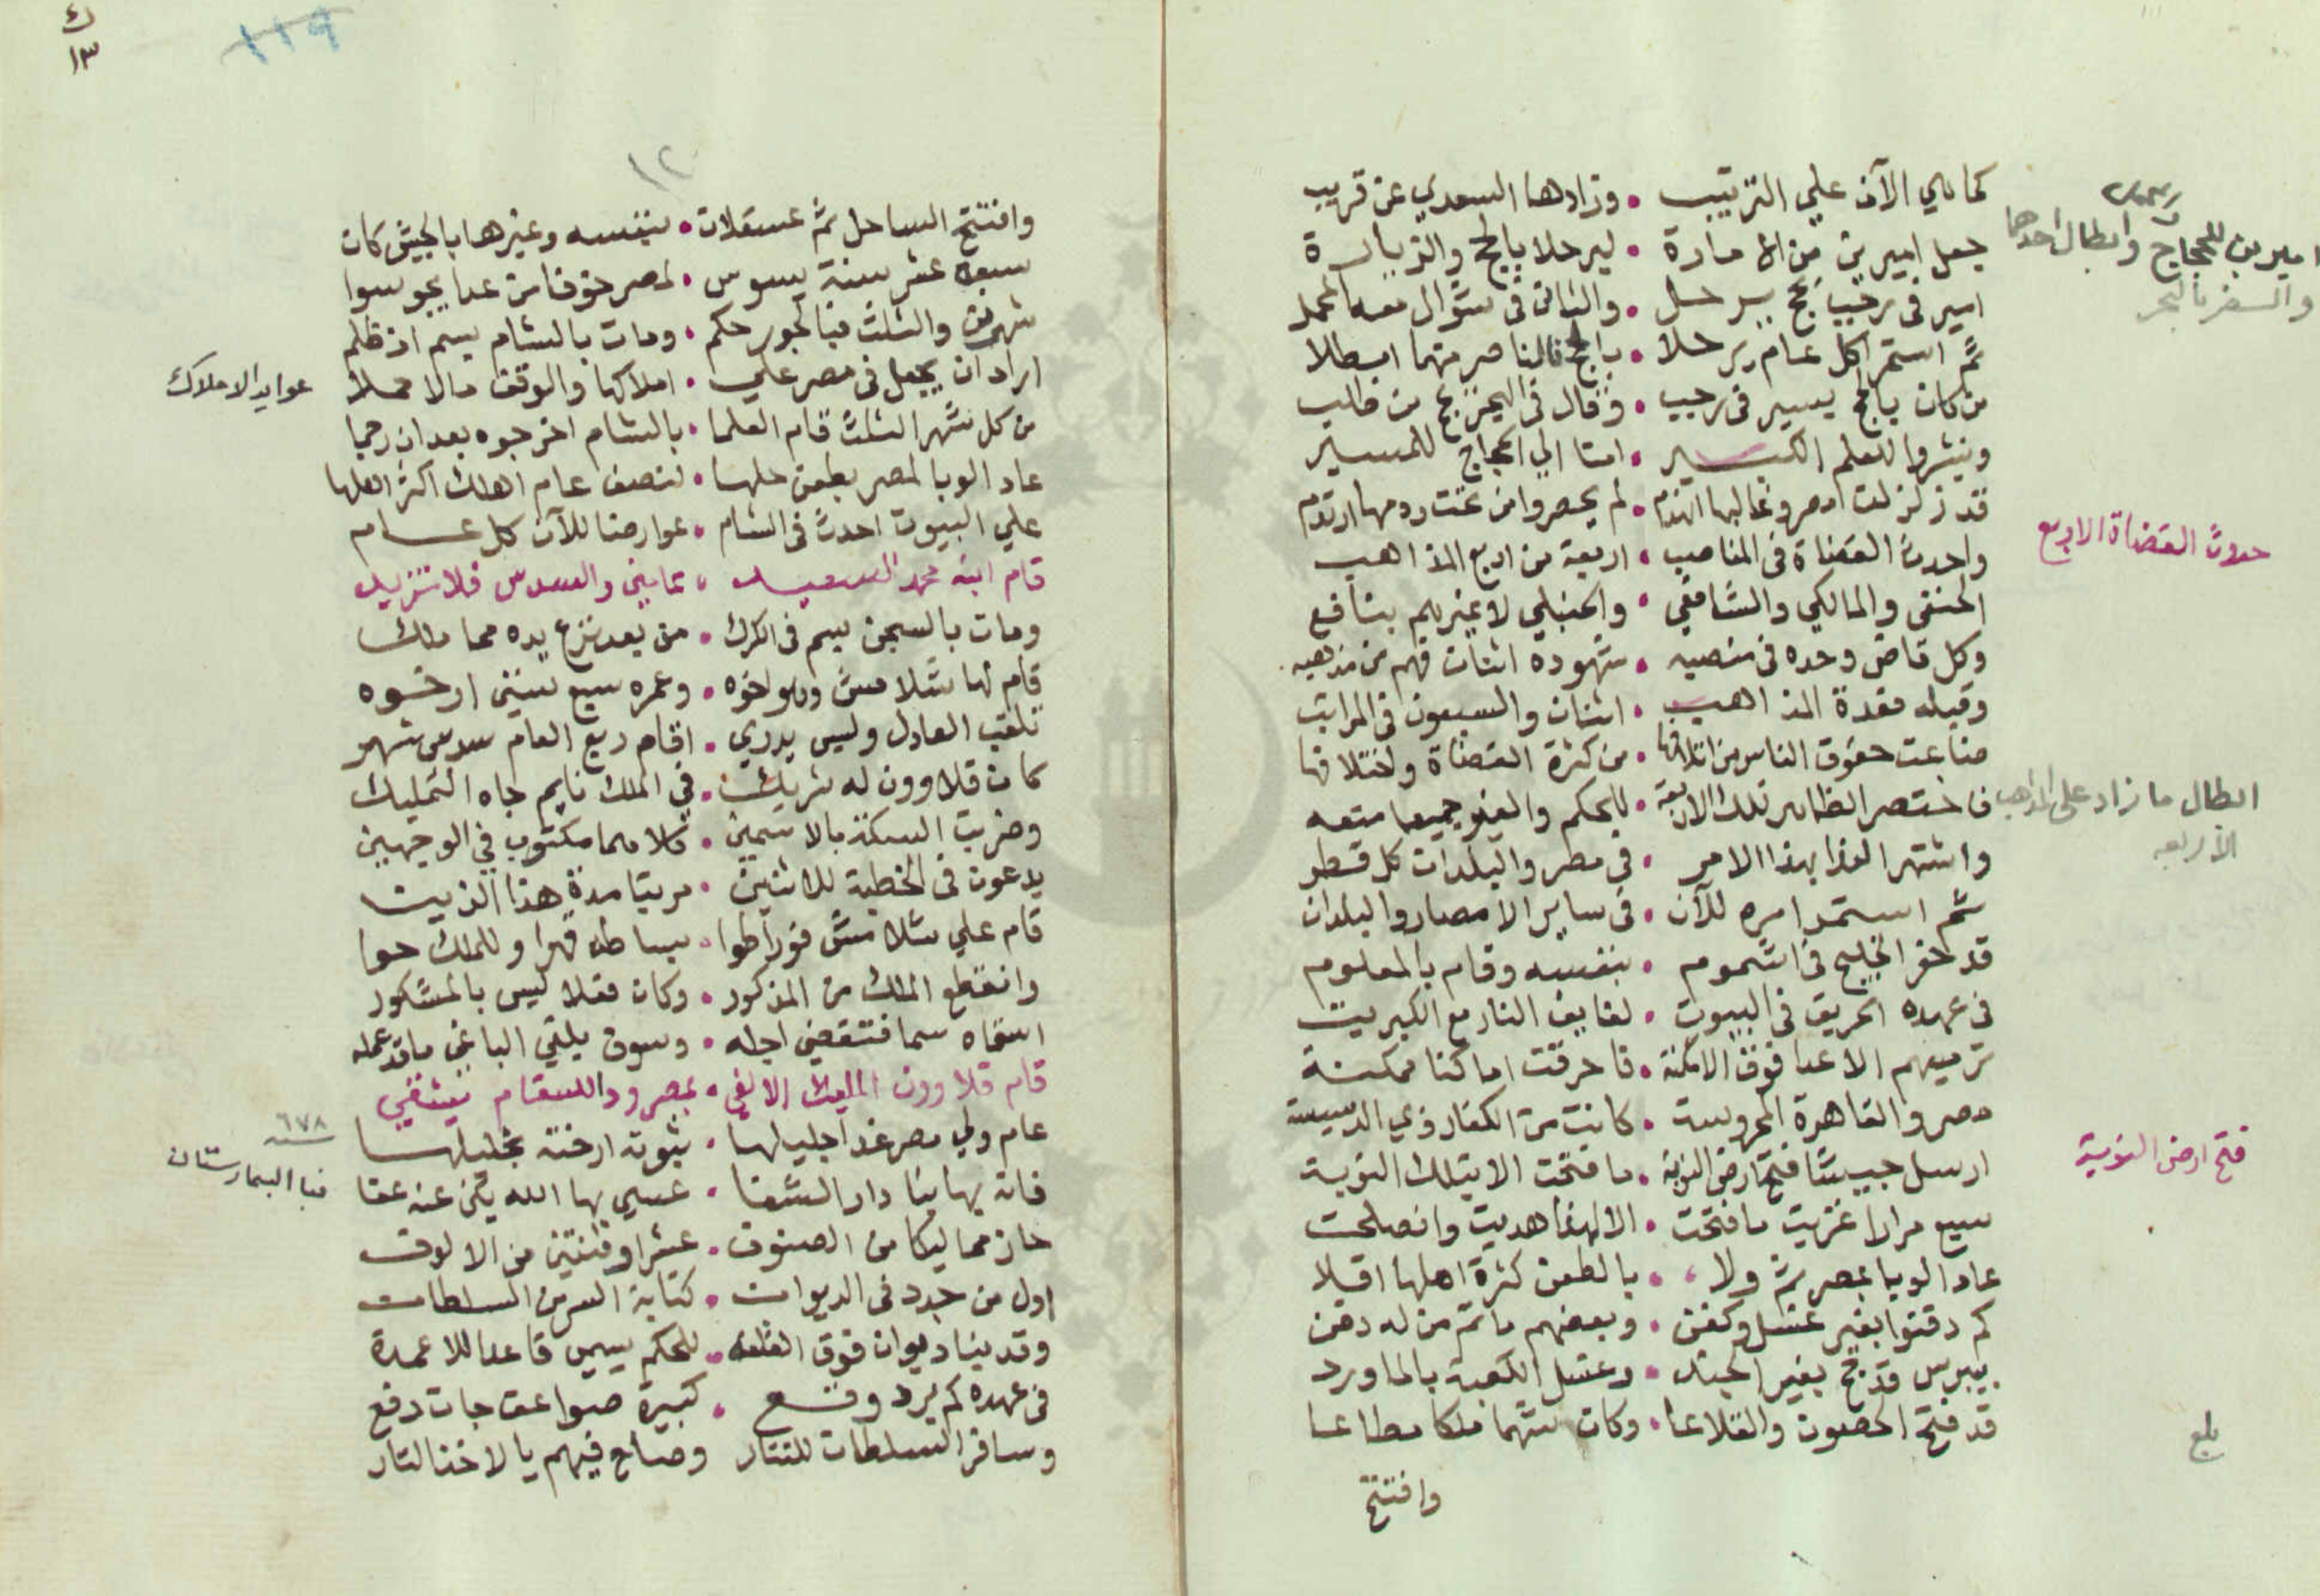 كما هي الآن علي الترتيب • وزادها السعدي عن قريب
جعل اميرين من الامارة • ليرحلا بالحج والزيارة
امير في رجب بحج يرحل • والثاني في شوال معه المحمل
ثم استمرا كل عام يرحلا • بالحج فالناصر منهما ابطلا
من كان بالحج يسير في رجب • وقال في البحر بحج من طلب
وينشروا للعلم الكبير • امنا الي الحجاج للمسير
قد زلزلت مصر وغالبها انهدم • لم يحصروا من تحت ردمها ارتدم
واحدث القضاة في المناصب • اربعة من اربع المذاهب
الحنفي والمالكي والشافعي • والحنبلي لا غيرهم بنافع
وكل قاض وحده في منصبه • شهوده اثنان فهم من مذهبه
وقبله مقدة المذاهب • اثنان والسبعون في المراتب
ضاعت حقوق الناس من اتلافها • من كثرة القضاة واختلافها
فاختصر الظاهر تلك الاربعة • بالحكم والغير جميعا منعه
واشتهر الغدا بهذا الامر • في مصر والبلدان كل قطر
ثم استمد امره للآن • في ساير الامصار والبلدان
قد حفر الخليج في اشموم • بنفسه وقام بالمعلوم
في عهده الحريق في البيوت • لفايف النار مع الكبريت
ترميهم الاعدا فوق الامكنة • فاحرقت اماكنا ممكنة
مصر والقاهرة المحروسة • كانت من الكفار ذوي الدسيسة
ارسل جيشا فتح ارض النوبة • ما فتحت الا بتلك النوبة
سبع مرارا غزيت ما فتحت • الا لهذا هديت وانصلحت
عاد الوبا بمصر ثم ولا • بالطعن كثرة اهلها اقلا
كم دفنوا بغير غسل وكفن • وبعضهم ما تم من له دفن
بيبرس قد حج بغير الجند • وغسل الكعبة بالماورد
قد فتح الحصون والقلاعا • وكان شهما ملكا مطاعا
وافتتح
اميرين للحجاج وابطال احدهما
والسفر بالبحر
حدوث القضاة الاربع
ابطال ما زاد على المذاهب
الأربعه
فتح ارض النوبة
بلغ
ك
١٣
١١٩
١٢
وافتتح الساحل ثم عسقلان • بنفسه وغيرها بالجيش كان
سبعة عشر سنة يسوس • لمصر خوفا من عدا يجوسوا
شهرين والثلث فبالجور حكم • ومات بالشام بسم اذ ظلم
اراد ان يجعل في مصر علي • املاكها والوقف مالا حملا
من كل شهر الثلث قام العلما • بالشام اخرجوه بعد ان رجما
عاد الوبا لمصر بطعن حلها • لنصف عام اهلك اكثر اهلها
علي البيوت احدث في الشام • عوارضا للآن كل عام
قام ابنه محمد السعيد • عامين والسدس فلا تزيد
ومات بالسجن بسم في الكرك • من بعد نزع يده مما ملك
قام لها شلامش وهو اخوه • وعمره سبع سنين ارخوه
تلقب العادل وليس يدري • اقام ربع العام سدس شهر
كان قلاوون له شريك • في الملك نايم جاه التمليك
وضربت السكة بالاسمين • كلاهما مكتوب في الوجهين
يدعون في الخطبة للاثنين • مرتبا مدة هذا الذين
قام علي شلامش فورا طوا • بساطه قهرا وللملك حوا
وانقطع الملك من المذكور • وكان فعلا ليس بالمشكور
اسقاه سما فتقضي اجله • وسوف يلقي الباغي ما قد عمله
قام قلاوون المليك الالفي • بمصر وداالسقام يشفي
عام ولي مصر غدا جليلها • بثوته ارخته بخليلها
فان بها بنا دار الشفا • عسي بها الله يكن عنه عفا
حاز مماليكا من الصنوف • عشرا وثنتين من الالوف
اول من جدد في الديوان • كتابة السر من السلطان
وقد بنا ديوان فوق القلعه • للحكم يسمي قاعدا للاعمدة
في عهده كم برد وقع • كبيرة صواعق جات دفع
وسافر السلطان للتتار وصاح فيهم يا لاخذ الثار
عوايد الاملاك
سنة ٦٧٨
بنا البيمارستان